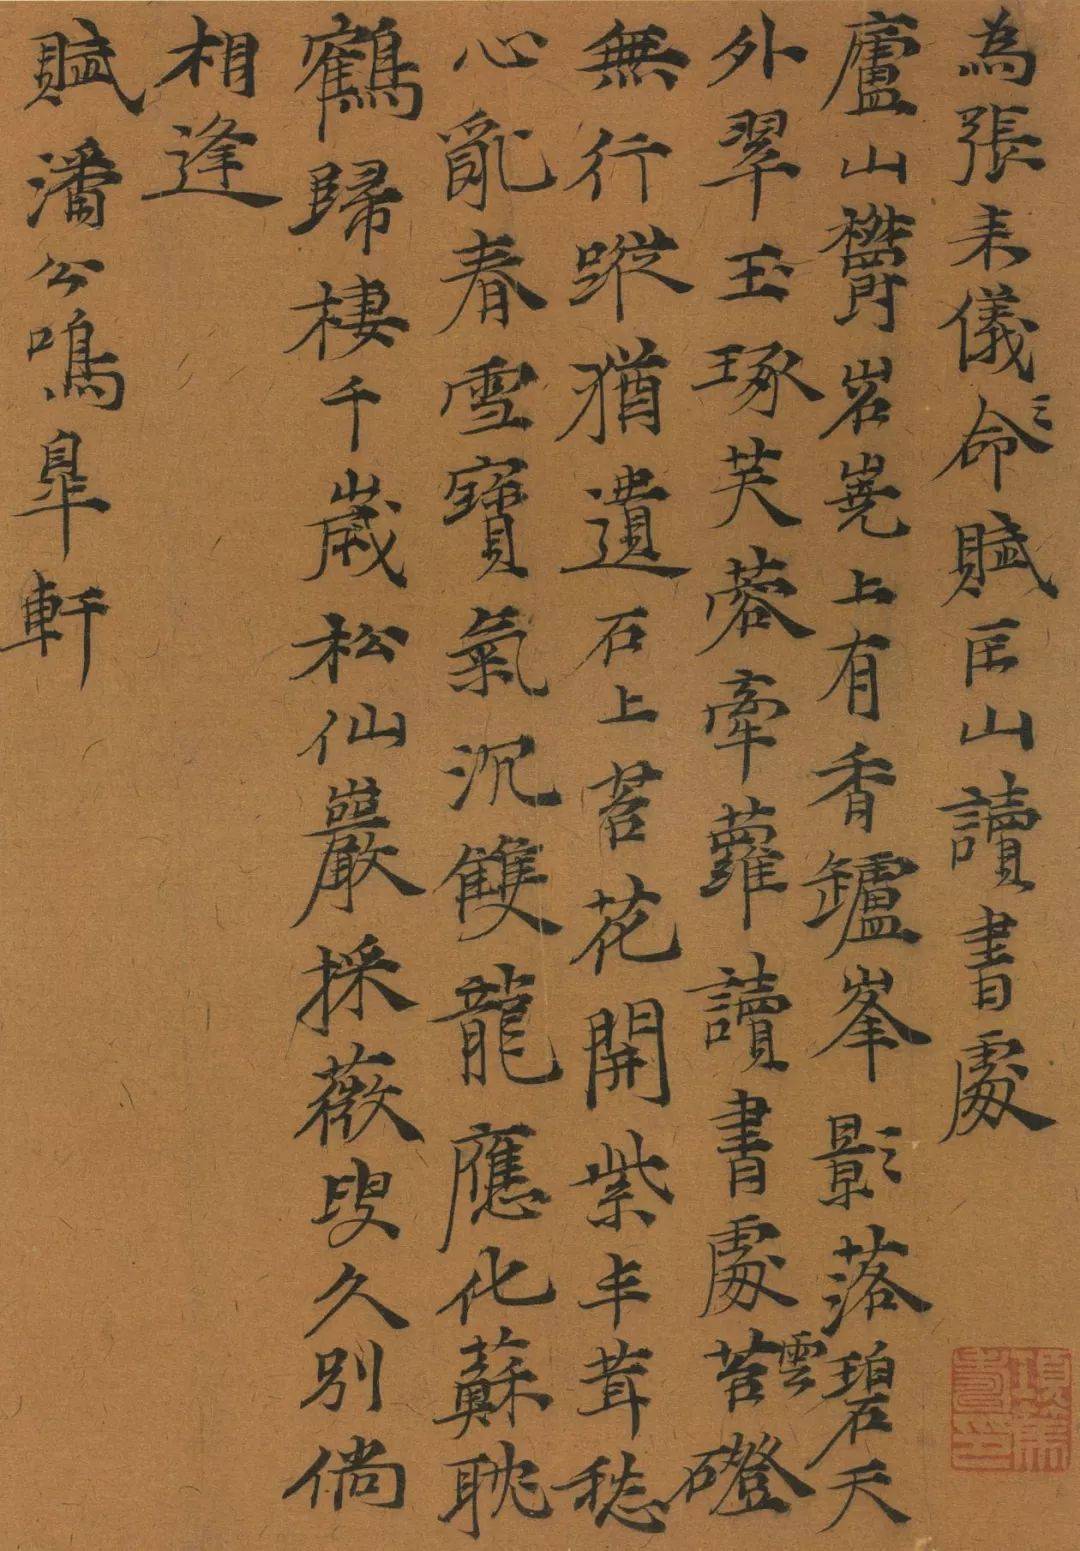 為張来儀命賦匡山讀書處
廬山欝岧嶤上有香鑪峯影落碧天
外翠玉琢芙蓉牽蘿讀書處苔雲磴
無行蹤猶遺石上苔花開紫丰茸愁
心亂春雪寶氣沉雙龍應化蘇耽
鶴歸棲千歲松仙巖採薇叟久別倘
相逢
賦潘公鳴皋軒